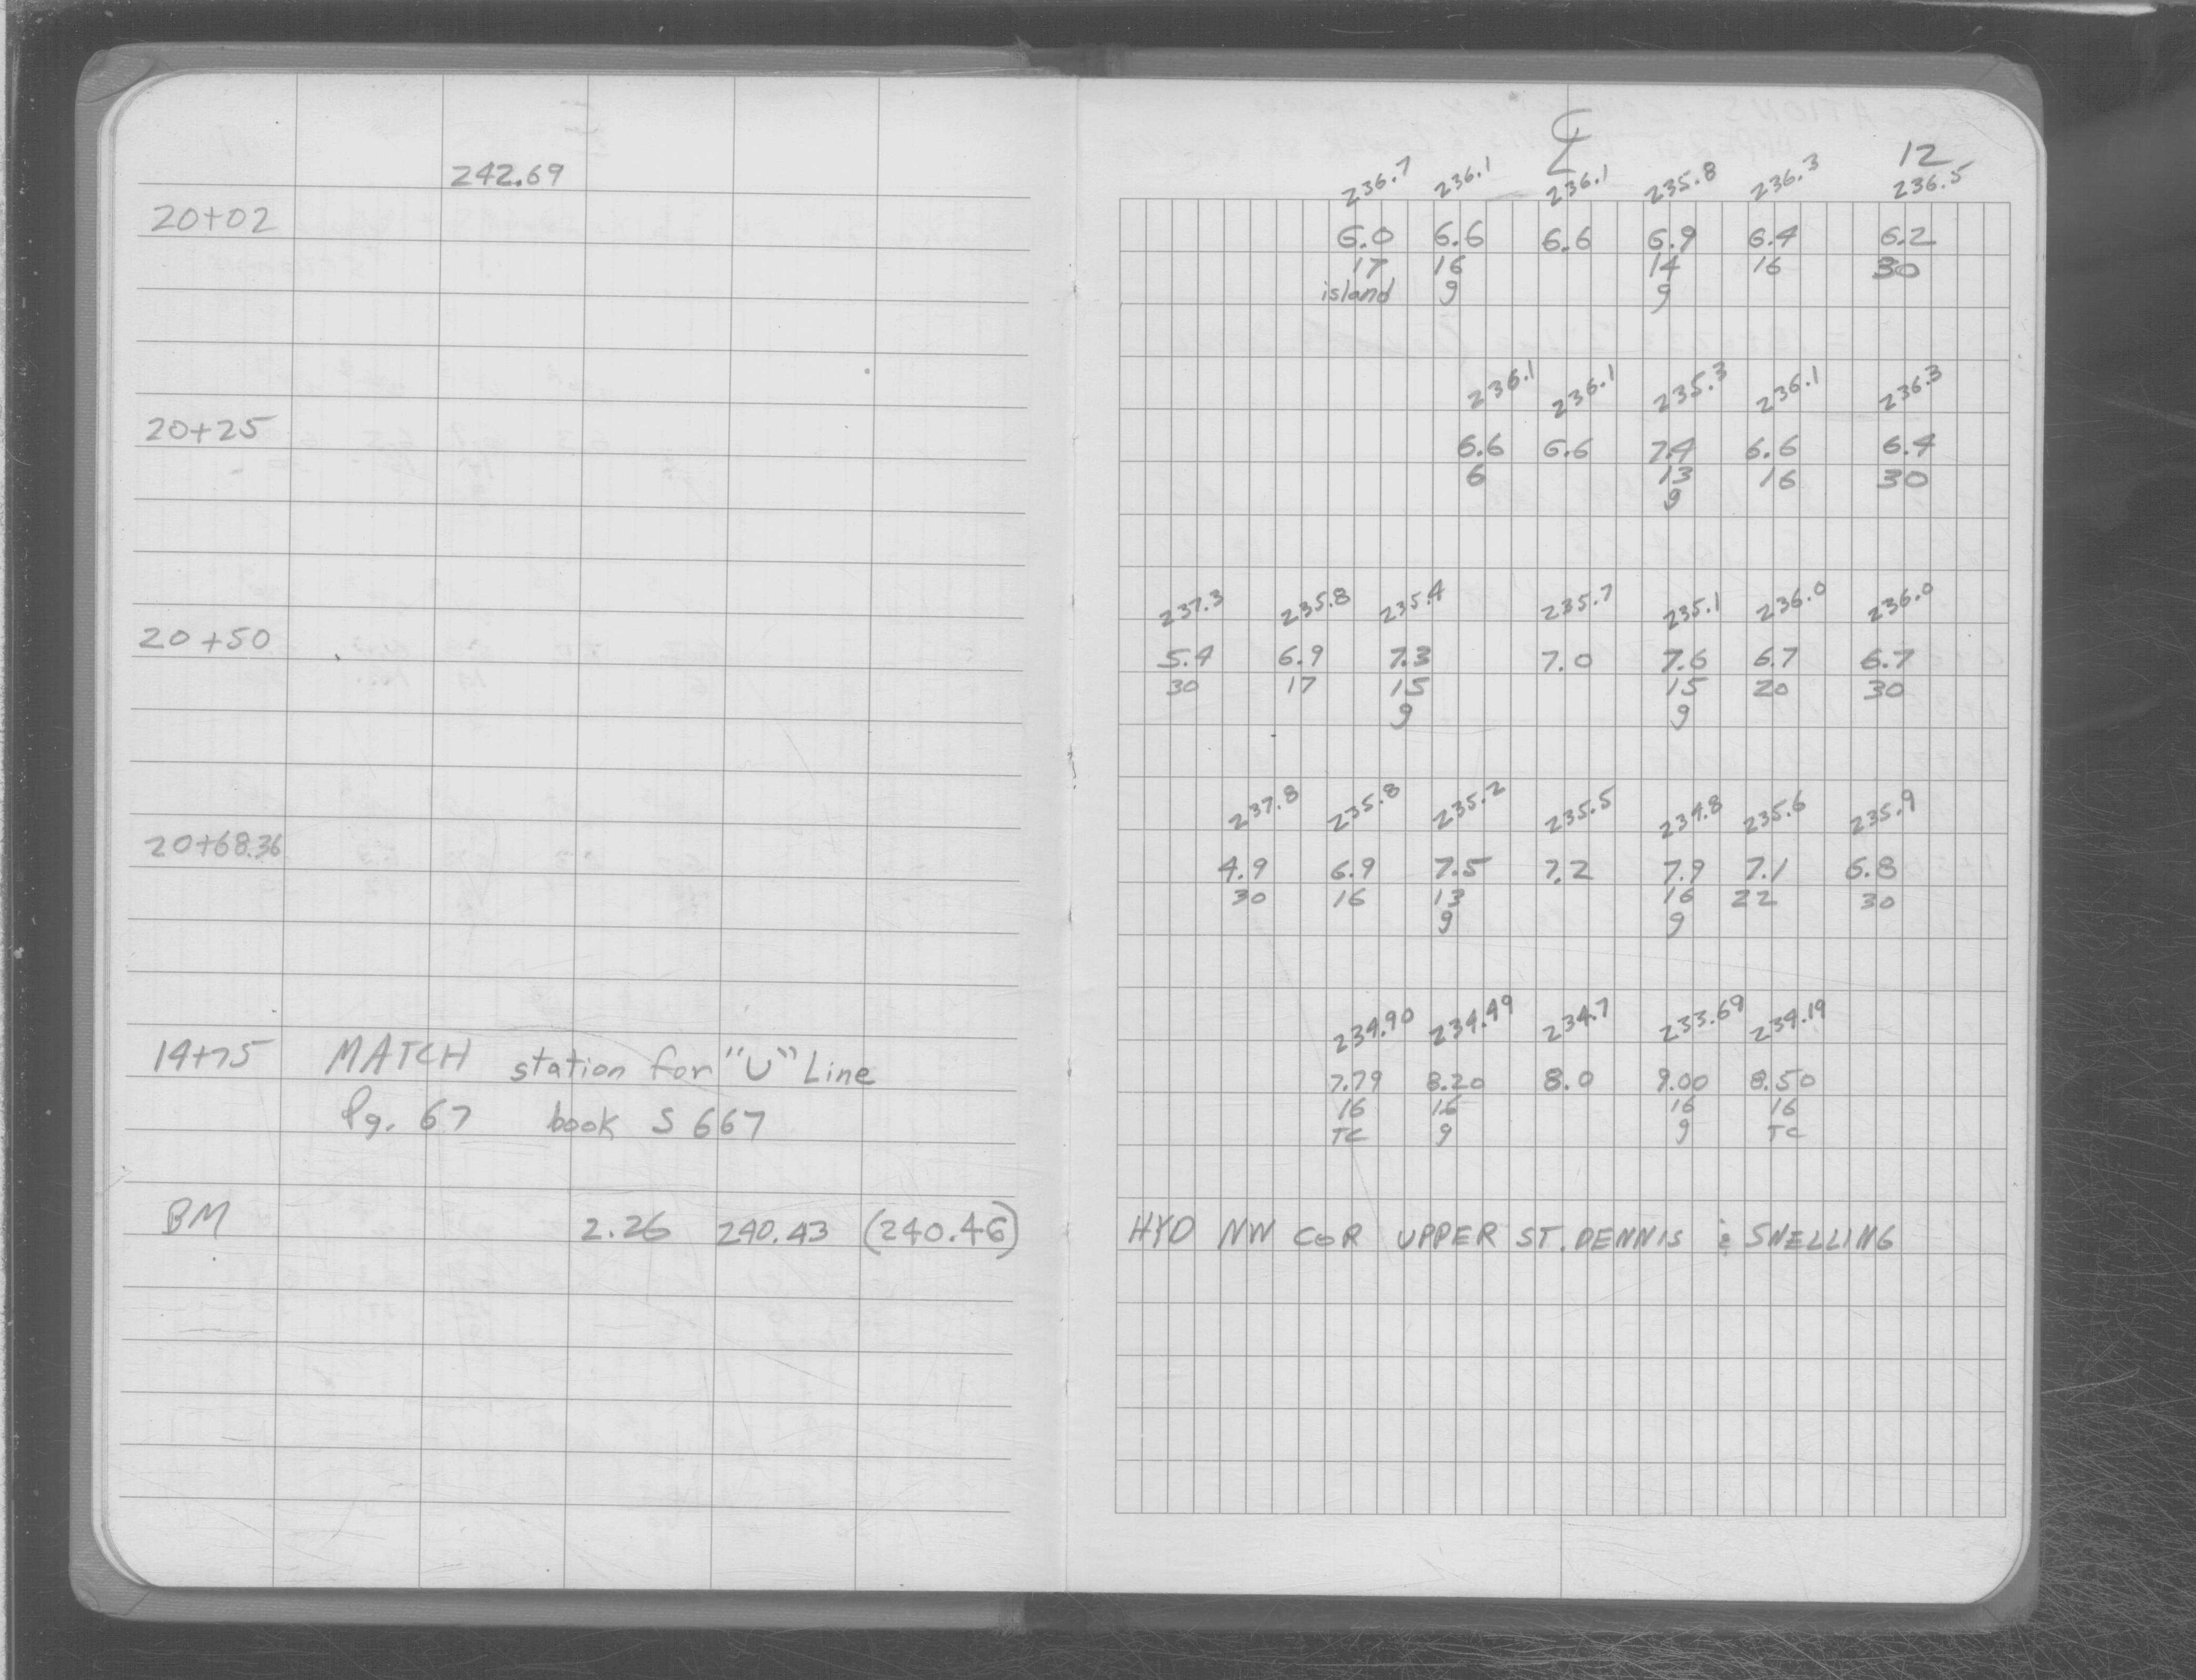 242.69
20+02
20+25
20+50
20+68.36
14+75 MATCH station for "U" Line
Pg. 67 book S 667
BM 2.26 240.43 (240.46)
℄
12
236.7 236.1 236.1 235.8 236.3 236.5
6.0 6.6 6.6 6.9 6.4 6.2
17 16 14 16 30
island g g
236.1 236.1 235.3 236.1 236.3
6.6 6.6 7.4 6.6 6.4
6 13 16 30
g
237.3 235.8 235.4 235.7 235.1 236.0 236.0
5.4 6.9 7.3 7.0 7.6 6.7 6.7
30 17 15 15 20 30
g g
237.8 235.8 235.2 235.5 234.8 235.6 235.9
4.9 6.9 7.5 7.2 7.9 7.1 6.8
30 16 13 16 22 30
g g
234.90 234.49 234.7 233.69 234.19
7.79 8.20 8.0 9.00 8.50
16 16 16 16
TC g g TC
HYD NW COR UPPER ST. DENNIS & SNELLING